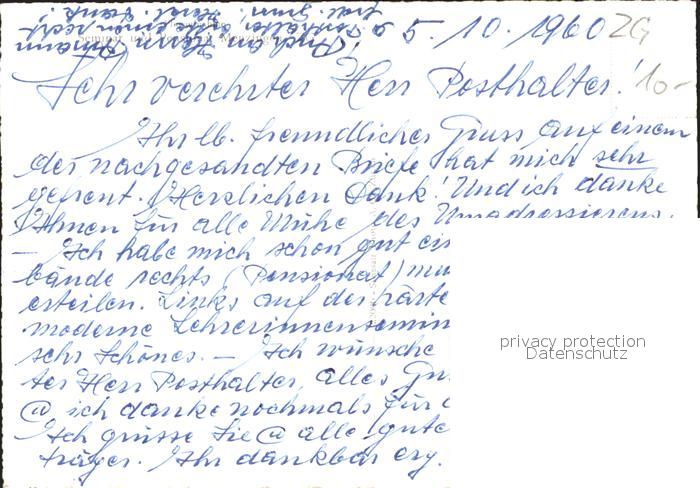 5. 10. 1960 ZG
10.-
Sehr verehrter Herr Posthalter!
Ihr lb. freundlicher Gruss auf einem
der nachgesandten Briefe hat mich sehr
gefreut. Herzlichen Dank! Und ich danke
Ihnen für alle Mühe des Umadressierens.
– Ich habe mich schon gut ein
bände rechts (Pensionat) mu
erteilen. Links auf der
moderne Lehrerinnensemin
sehr Schönes. – Ich wünsche
ter Herr Posthalter, alles Gu
@ ich danke nochmals für
Ich grüsse Sie @ alle gute
träger. Ihr dankbar erg.
privacy protection
Datenschutz
auch an Herrn Ammann